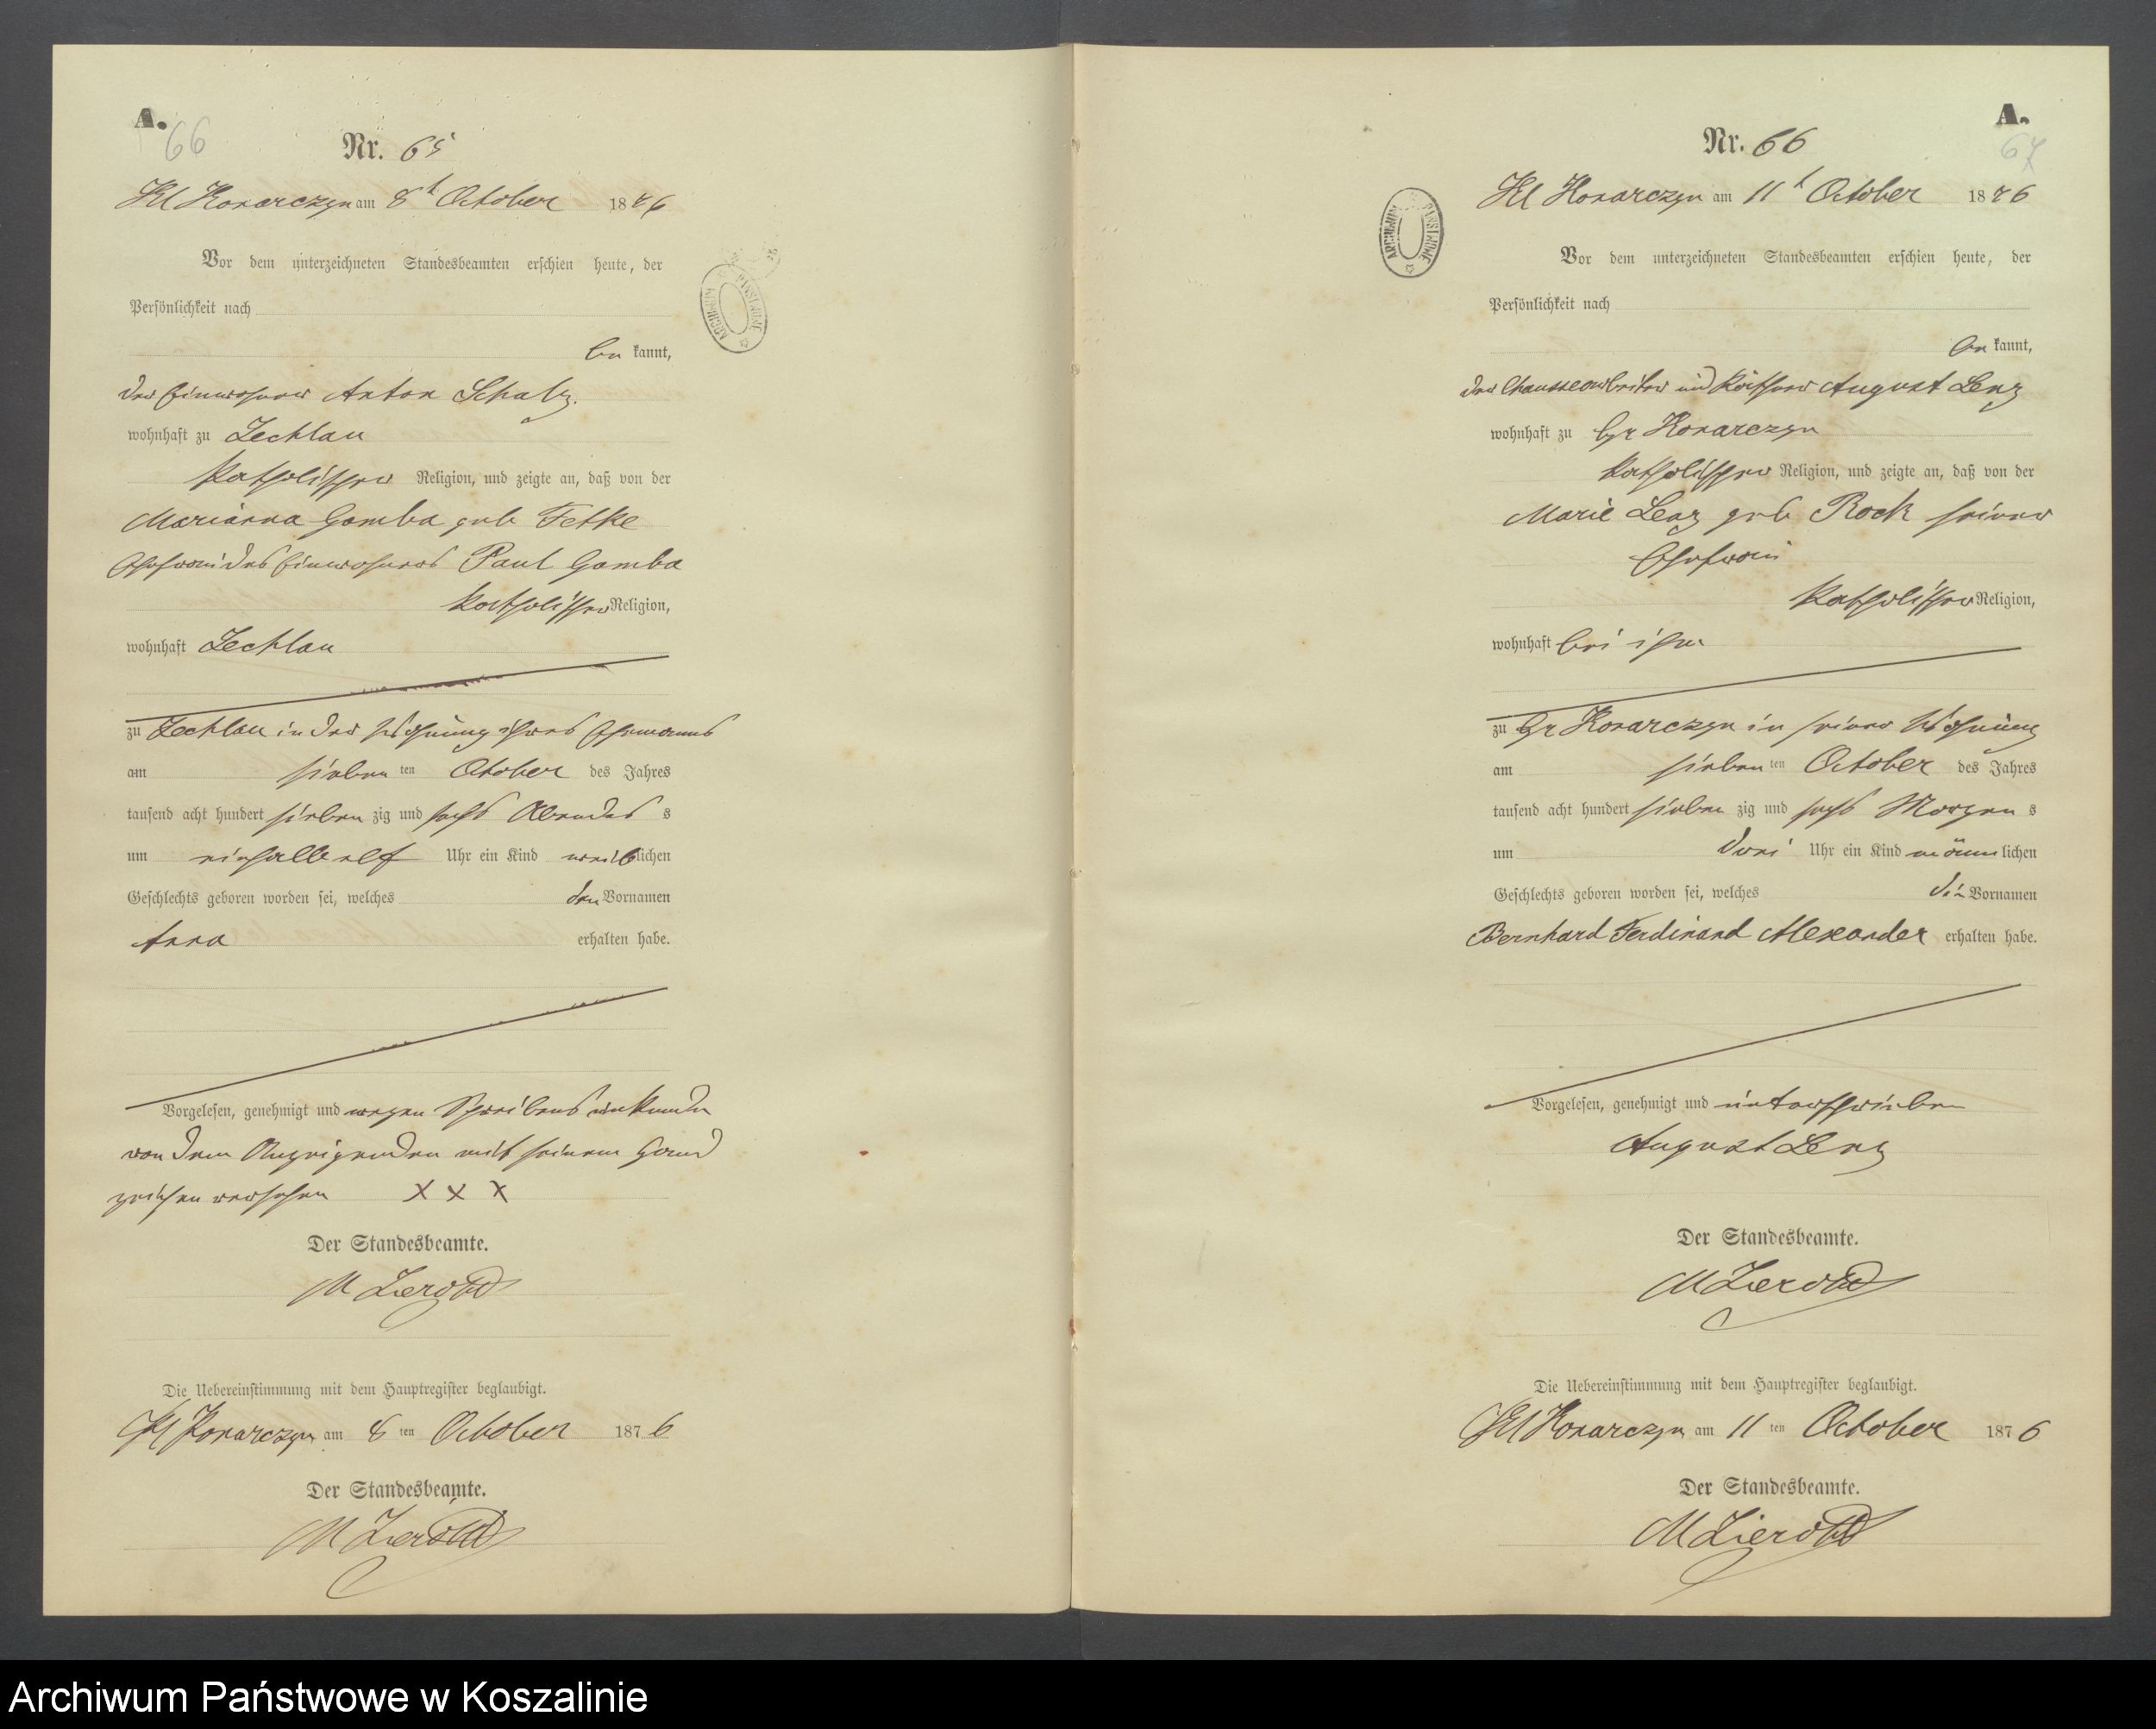 A.
66
Nr. 65
Kl Konarczyn am 8t October 1876
Vor dem unterzeichneten Standesbeamten erschien heute, der
Persönlichkeit nach
be kannt,
der Einwohner Anton Schulz.
wohnhaft zu Zechlau
katholischer Religion, und zeigte an, daß von der
Marianna Gomba geb Fetke
Ehefrau des Einwohners Paul Gomba
katholischer Religion,
wohnhaft Zechlau
zu Zechlau in der Wohnung ihres Ehemanns
am sieben ten October des Jahres
tausend acht hundert sieben zig und sechs Abendes s
um einhalb elf Uhr ein Kind weib lichen
Geschlechts geboren worden sei, welches den Vornamen
Anna erhalten habe.
Vorgelesen, genehmigt und wegen Schreibensunkunde
von dem Anzeigenden mit seinem Hand
zeichen versehen X X X
Der Standesbeamte.
M
Die Uebereinstimmung mit dem Hauptregister beglaubigt.
Kl Konarczyn am 8 ten October 1876
Der Standesbeamte.
M
ARCHIWUM PAŃSTWOWE
A.
67
Nr. 66
Kl Konarczyn am 11t October 1876
Vor dem unterzeichneten Standesbeamten erschien heute, der
Persönlichkeit nach
be kannt,
der Chausseearbeiter und Käthner August Lenz
wohnhaft zu Gr Konarczyn
katholischer Religion, und zeigte an, daß von der
Marie Lenz geb Rock seiner
Ehefrau
katholischer Religion,
wohnhaft bei ihm
zu Gr Konarczyn in seiner Wohnung
am sieben ten October des Jahres
tausend acht hundert sieben zig und sechs Morgen s
um drei Uhr ein Kind männ lichen
Geschlechts geboren worden sei, welches die Vornamen
Bernhard Ferdinand Alexander erhalten habe.
Vorgelesen, genehmigt und unterschrieben
August Lenz
Der Standesbeamte.
M
Die Uebereinstimmung mit dem Hauptregister beglaubigt.
Kl Konarczyn am 11 ten October 1876
Der Standesbeamte.
M
ARCHIWUM PAŃSTWOWE
Archiwum Państwowe w Koszalinie